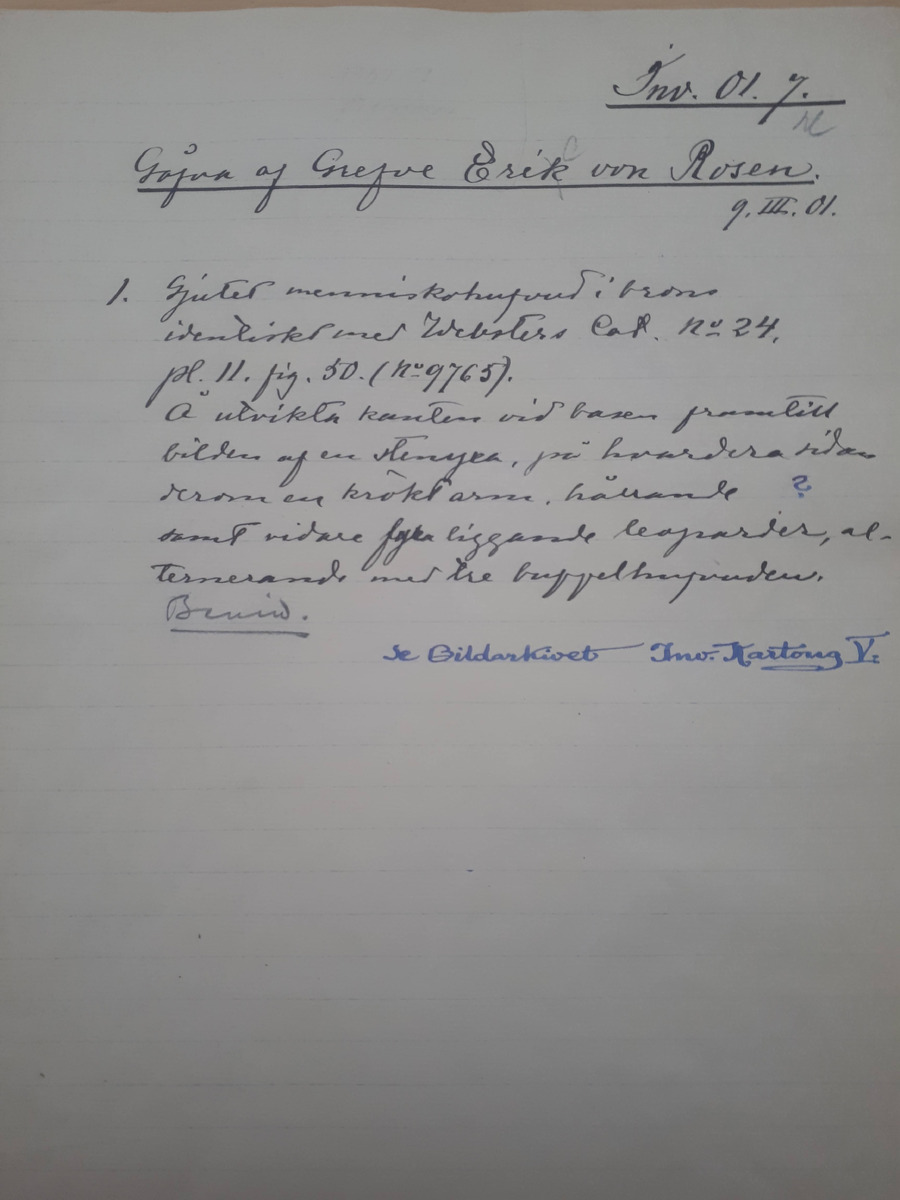 Inv. 01. 7.
Gåfva af Grefve Erik von Rosen.
9. III. 01.
1. Gjutet menniskohufvud i brons
identiskt med Websters Cat. No 24,
pl. 11. fig. 50. (No 9765).
Å utvikta kanten vid basen framtill
bilden af en stenyxa, på hvardera sidan
derom en krökt arm, hållande ?
samt vidare fyra liggande leoparder, al-
ternerande med tre buffelhufvuden.
Benin.
se Bildarkivet Inv. Kartong V: